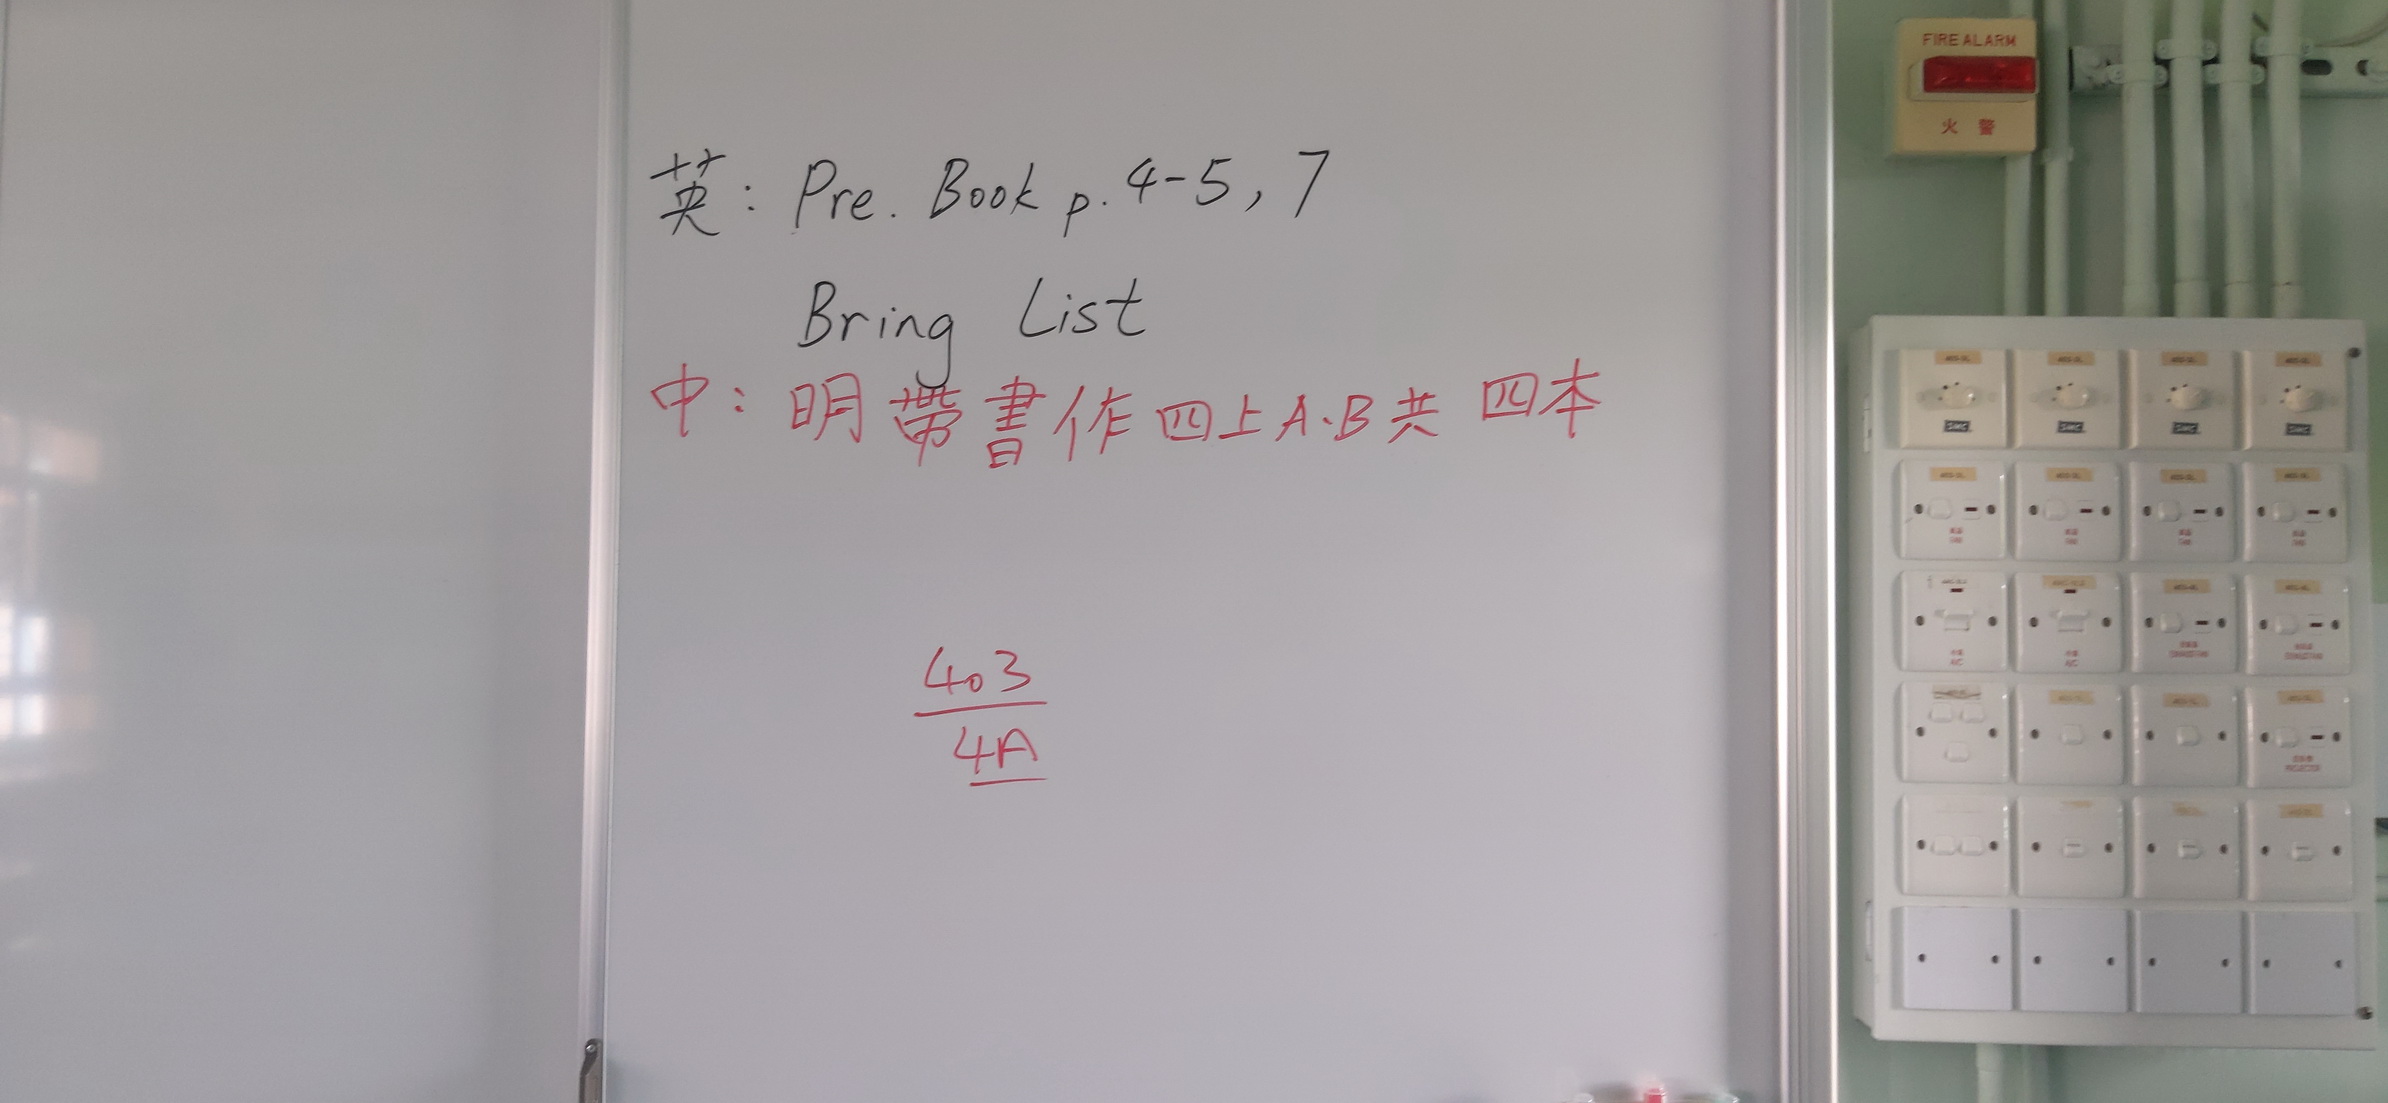 英: Pre. Book p. 4-5, 7
Bring List
中: 明帶書作四上A.B共四本
403
4A
FIRE ALARM
火 警